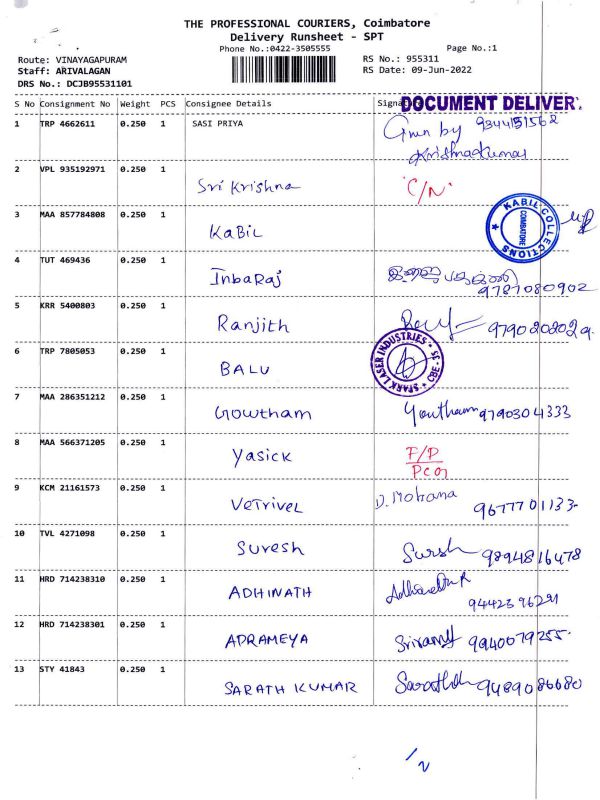 THE PROFESSIONAL COURIERS, Coimbatore
Delivery Runsheet - SPT
Phone No.:0422-3505555 Page No.:1
Route: VINAYAGAPURAM RS No.: 955311
Staff: ARIVALAGAN RS Date: 09-Jun-2022
DRS No.: DCJB95531101
S No Consignment No Weight PCS Consignee Details
DOCUMENT DELIVER
1 TRP 4662611 0.250 1 SASI PRIYA Given by 9344151562
Krishnakumar
2 VPL 935192971 0.250 1 Sri Krishna "C/N"
3 MAA 857784808 0.250 1 KaBiL KABIL COLLECTIONS COIMBATORE
4 TUT 469436 0.250 1 InbaRaj
9787080902
5 KRR 5400803 0.250 1 Ranjith 9790208029
6 TRP 7805053 0.250 1 BALU SPARK LASER INDUSTRIES CBE-35
7 MAA 286351212 0.250 1 Gowtham Gowtham 9790304333
8 MAA 566371205 0.250 1 Yasick F/P
9 KCM 21161573 0.250 1 VeTriveL D. Mohana 9677701133
10 TVL 4271098 0.250 1 Suresh Sursh 9894816478
11 HRD 714238310 0.250 1 ADHINATH
9442396291
12 HRD 714238301 0.250 1 APRAMEYA 9940079255
13 STY 41843 0.250 1 SARATH KUMAR 9489086680